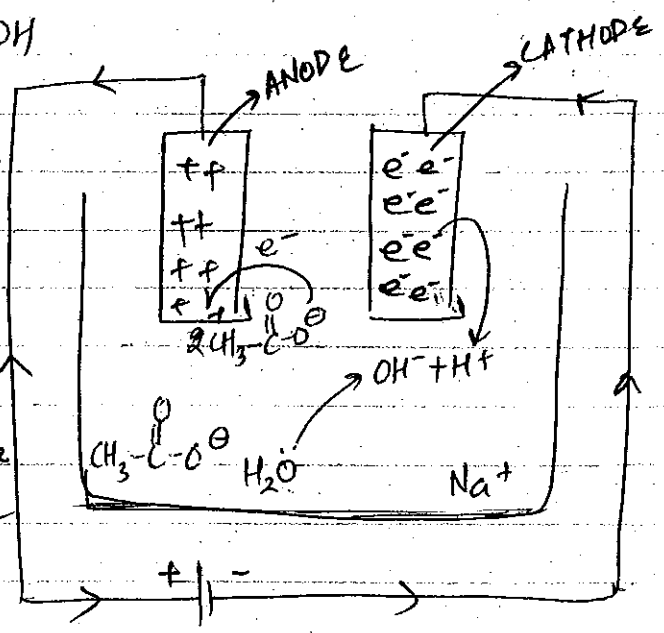 OH
ANODE
CATHODE
++
++
++
++
e⁻
e⁻ e⁻
e⁻ e⁻
e⁻ e⁻
e⁻ e⁻
O
2CH₃-C-O⊖
OH⁻+H⁺
O
CH₃-C-O⊖
H₂O
Na⁺
+ -